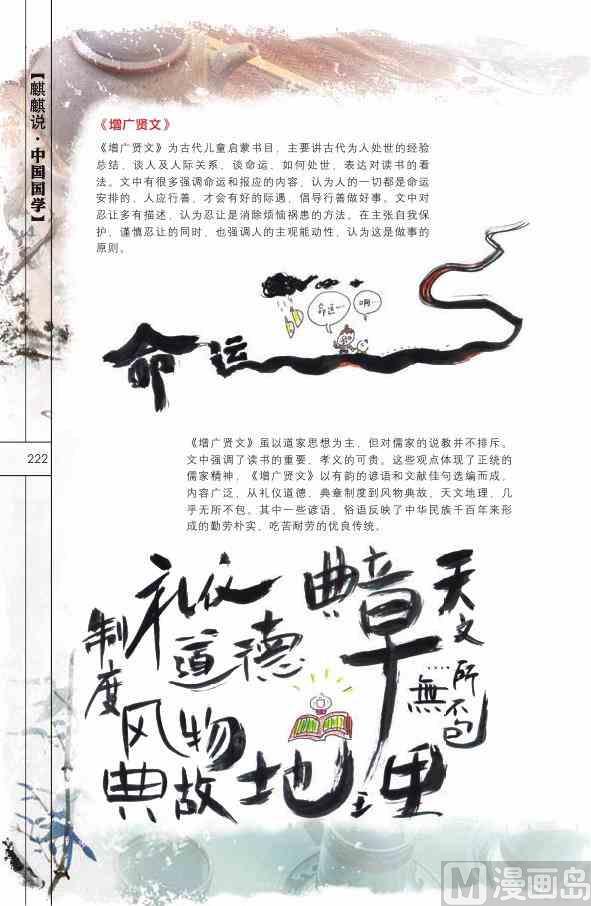 【麒麟说·中国国学】
《增广贤文》
《增广贤文》为古代儿童启蒙书目，主要讲古代为人处世的经验
总结，谈人及人际关系、谈命运，如何处世，表达对读书的看
法。文中有很多强调命运和报应的内容，认为人的一切都是命运
安排的，人应行善，才会有好的际遇，倡导行善做好事。文中对
忍让多有描述，认为忍让是消除烦恼祸患的方法。在主张自我保
护、谨慎忍让的同时，也强调人的主观能动性，认为这是做事的
原则。
命运…
啊…
命运
222
《增广贤文》虽以道家思想为主，但对儒家的说教并不排斥。
文中强调了读书的重要、孝文的可贵。这些观点体现了正统的
儒家精神，《增广贤文》以有韵的谚语和文献佳句选编而成，
内容广泛，从礼仪道德、典章制度到风物典故、天文地理，几
乎无所不包。其中一些谚语、俗语反映了中华民族千百年来形
成的勤劳朴实、吃苦耐劳的优良传统。
礼仪
道德
典章
制度
天文
地理
风物
典故
……
無所不包
M漫画岛